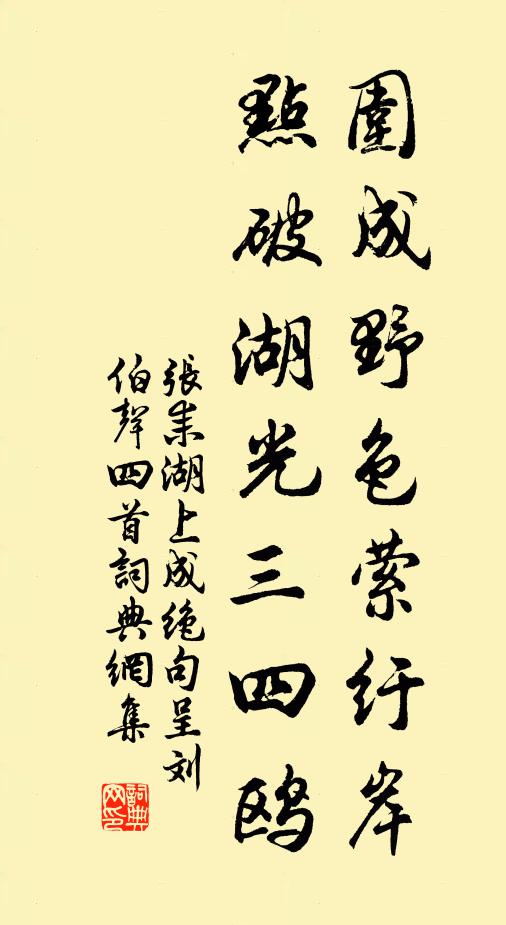 圍成野色萦纡岸
點破湖光三四鸥
張耒湖上成绝句呈刘
伯聲四首詞典網集
詞典
网印